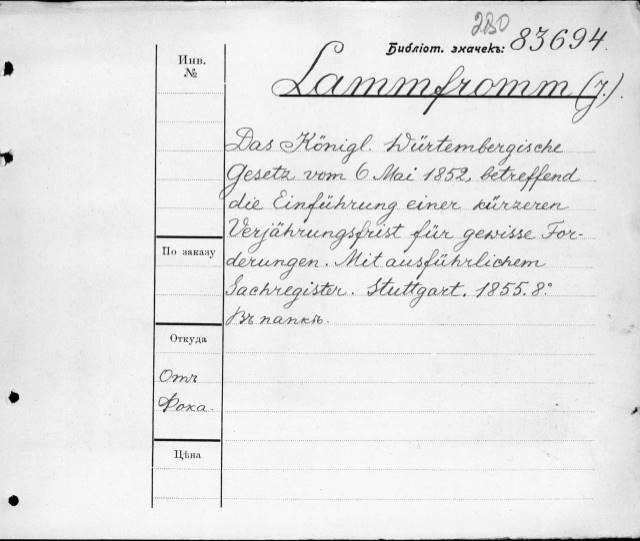 280
Библіот. значекъ: 83694.
Инв.
№
Lammfromm (J.).
Das Königl. Würtembergische
Gesetz vom 6 Mai 1852, betreffend
die Einführung einer kürzeren
Verjährungsfrist für gewisse For-
derungen. Mit ausführlichem
Sachregister. Stuttgart. 1855. 8.º
Въ папкѣ.
По заказу
Откуда
Отъ
Фока.
Цѣна